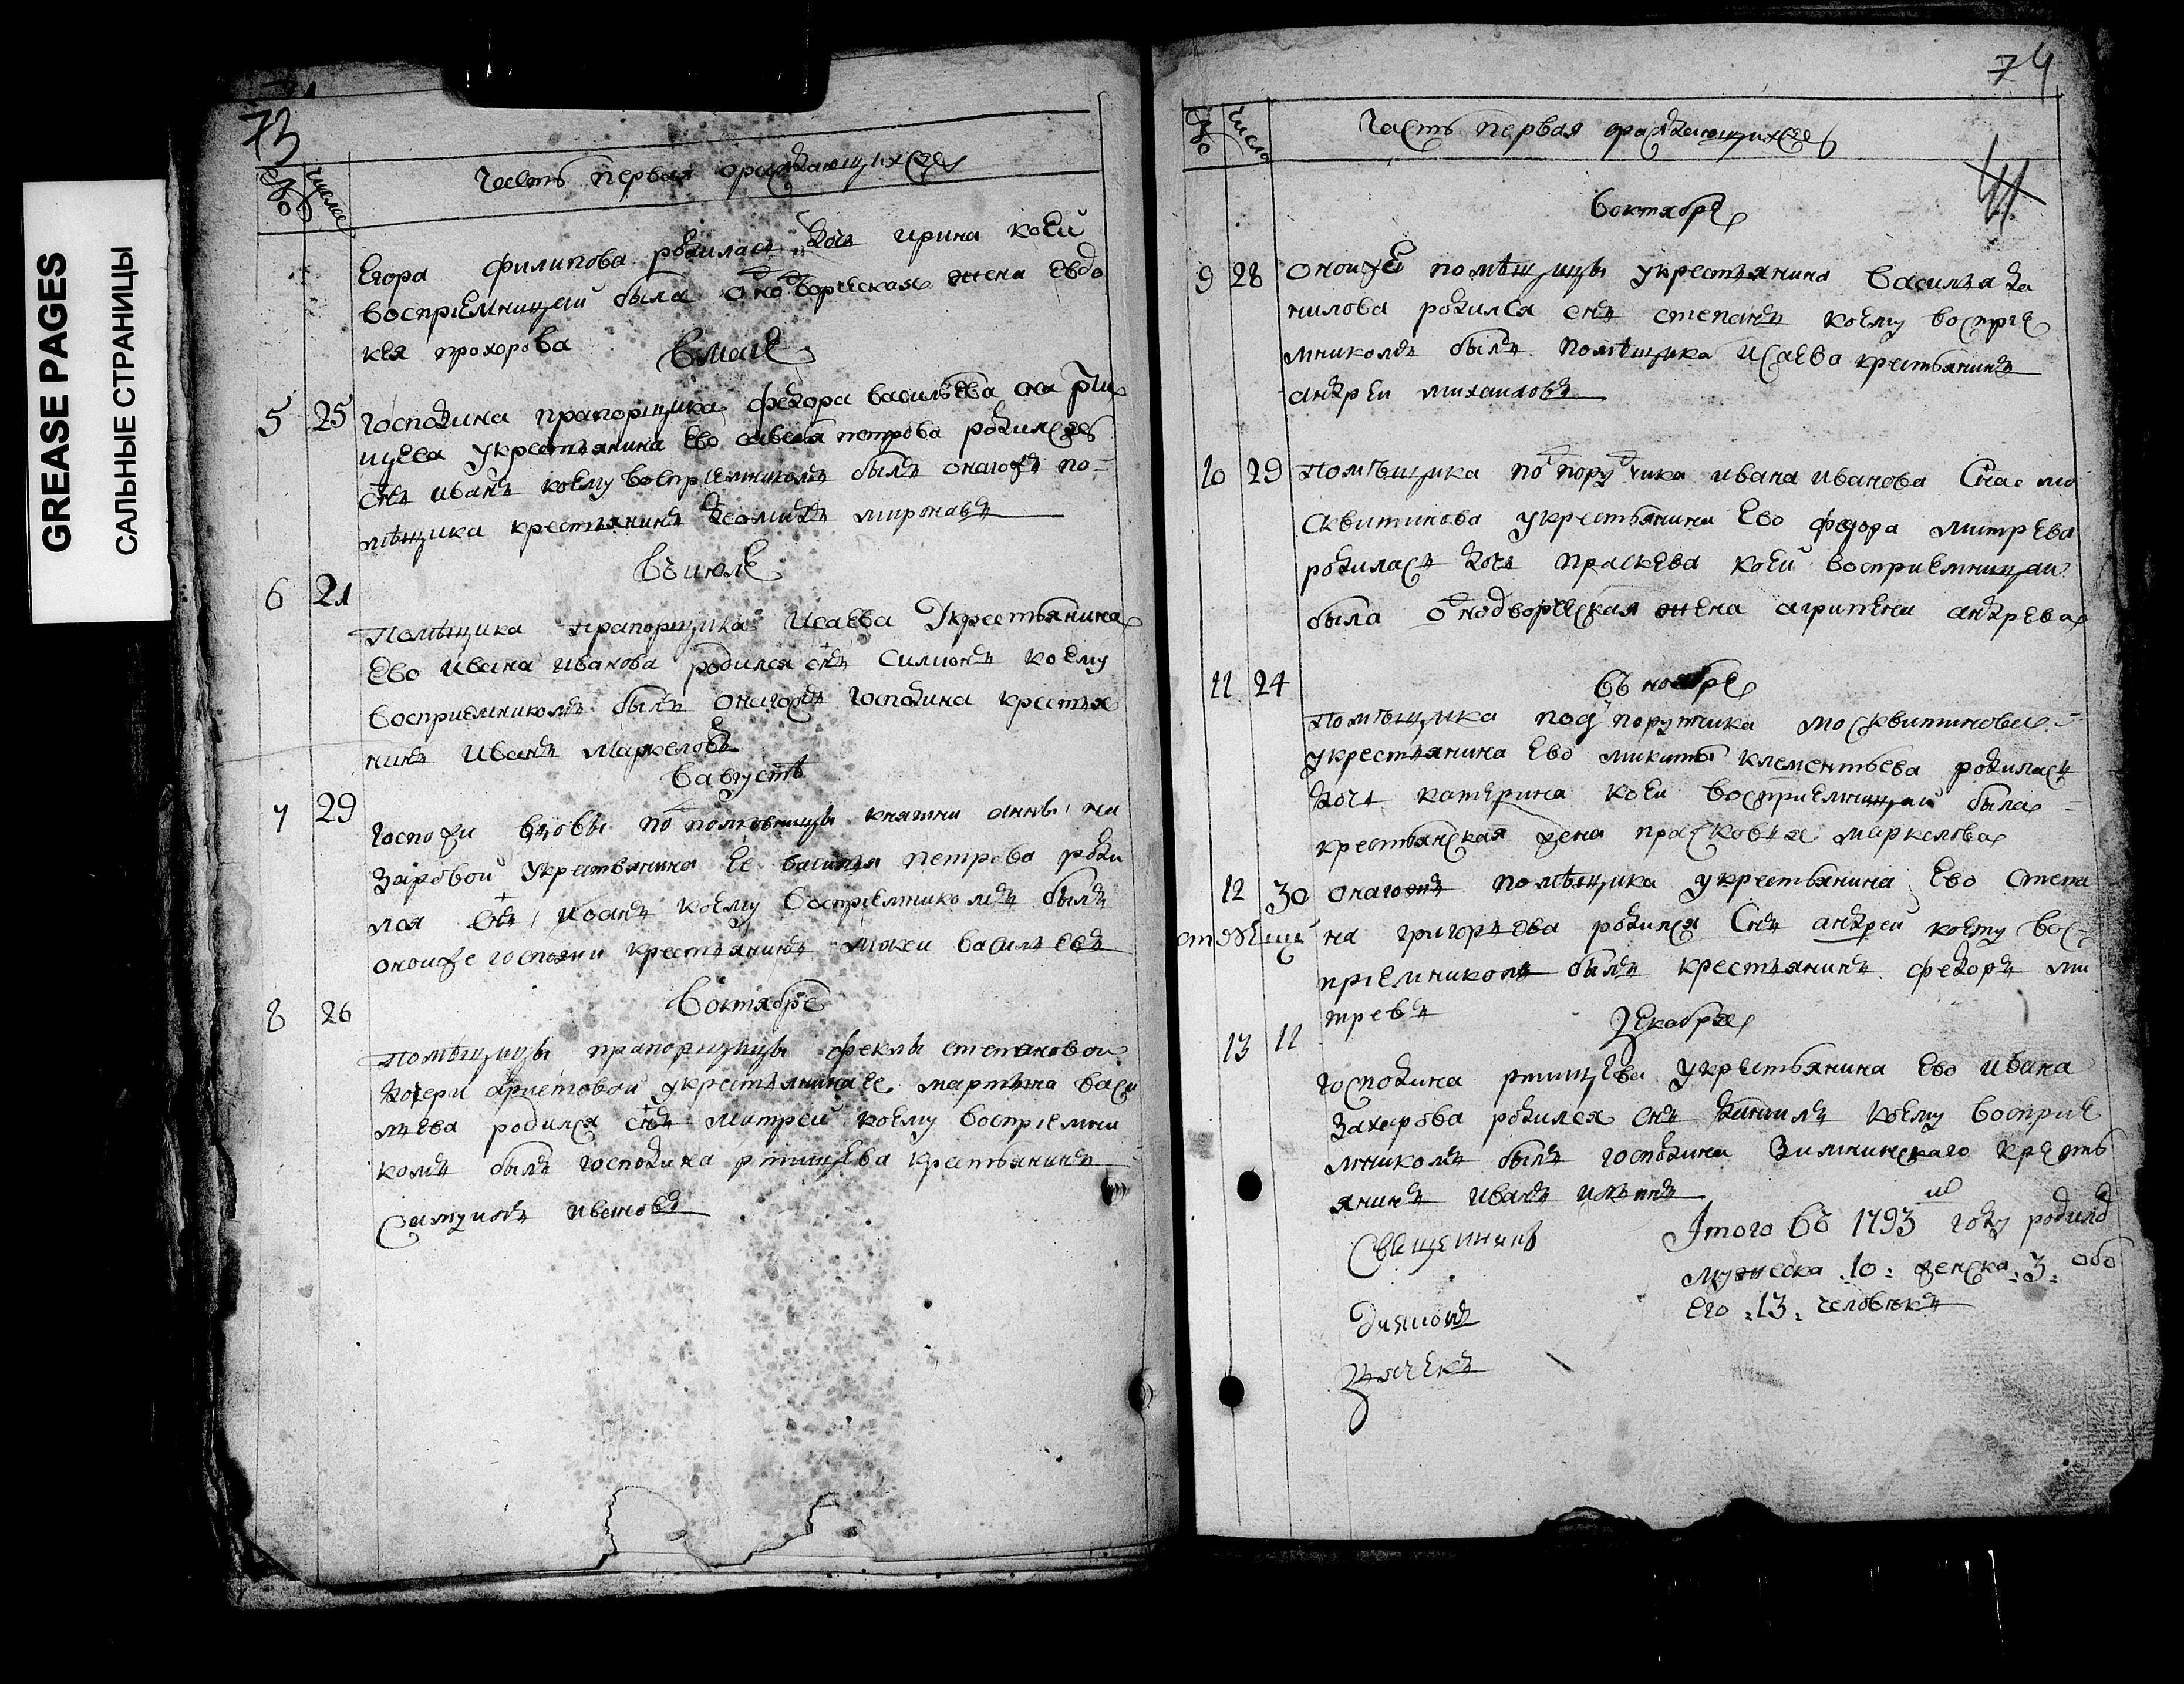 GREASE PAGES
САЛЬНЫЕ СТРАНИЦЫ
73
№
числа
часть первая ораждающихся
Егора филипова родилась дочь ирина коеи
восприемницаи была однодворческая жена Евдо
кея прохорова
в маие
5 25 господина прапорщика федора васильева сна рти
щева укрестьянина ево савелья петрова родился
снъ иванъ коему восприемникомъ былъ онагожъ по-
мѣщика крестьянинъ миронавъ
въ июле
6 21
помѣщика прапорщика Исаева Укрестьянина
Ево ивана иванова родился снъ симионъ коему
восприемникомъ былъ онагожъ господина крестья
нинъ иванъ маркеловъ
в августѣ
7 29
госпожи вдовы подполковницы княгини анны на
заровой укрестьянина Ее василья петрова роди
лся снъ иоанъ коему восприемникомъ былъ
оноиже госпожи крестьянинъ мокеи васильевъ
в октябре
8 26
помѣщицы прапорщицы феклы степановои
дочери укрестьянина ее мартына васи
льева родился снъ митреи коему восприемни
комъ былъ господина ртищева крестьянинъ
ивановъ
74
№
числа
часть первая ораждающихся
41
в октябре
9 28 оноиже помѣщицы укрестьянина василья да
нилова родился снъ степанъ коему восприе
мникомъ былъ помѣщика Исаева крестьянинъ
андреи михаиловъ
10 29 помѣщика подпоручика ивана иванова Сна мо
сквитинова укрестьянина Ево федора митрева
родилась дочь праскева коеи восприемницаи
была однодворческая жена агрипена андрева
въ ноябре
11 24
помѣщика подпорутчика москвитинова
укрестьянина Ево микиты клементьева родилась
дочь катерина коеи восприемницаи была
крестьянская жена прасковья маркелова
12 30 онагожъ помѣщика укрестьянина Ево Степа
на григорьева родился Снъ андреи коему вос-
приемникомъ былъ крестьянинъ федоръ ми
тревъ
декабря
13 11
господина ртищева укрестьянина Ево ивана
захарова родился снъ данилъ коему восприе
мникомъ былъ господина Зимнинскаго кресть
янинъ иванъ
Священникъ
Итого въ 1793 м году родилось
мужеска 10: женска: 3: обо
его :13: человекъ
Диаконъ
Дьячекъ